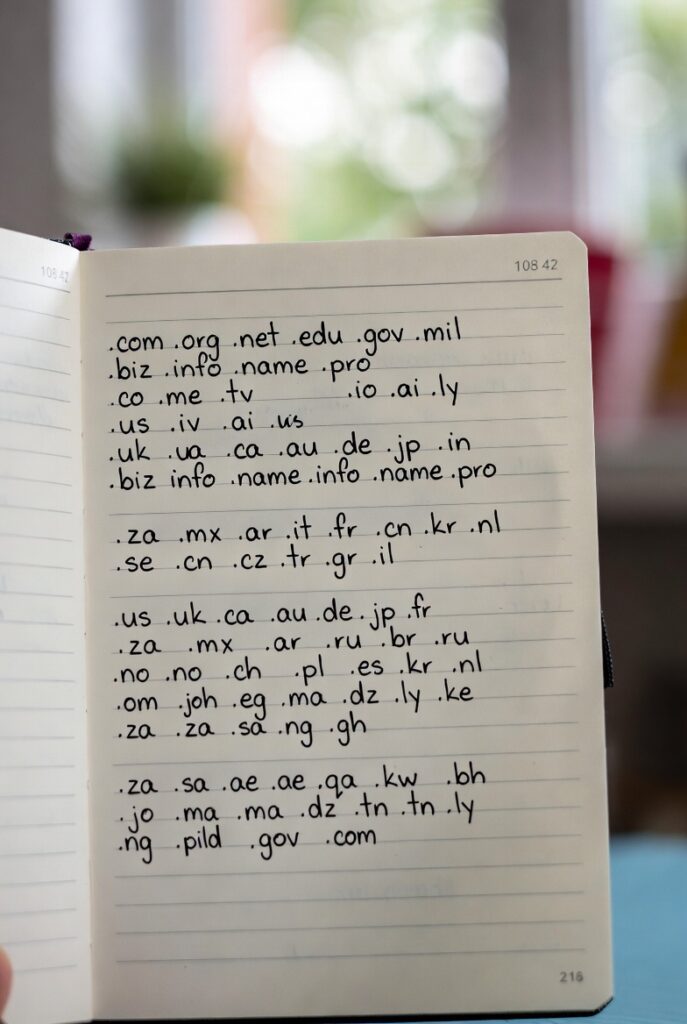 108 42
108 42
.com .org .net .edu .gov .mil
.biz .info .name .pro
.co .me .tv .io .ai .ly
.us .iv .ai .us
.uk .ua .ca .au .de .jp .in
.biz info .name .info .name .pro
.za .mx .ar .it .fr .cn .kr .nl
.se .cn .cz .tr .gr .il
.us .uk .ca .au .de .jp .fr
.za .mx .ar .ru .br .ru
.no .no .ch .pl .es .kr .nl
.om .joh .eg .ma .dz .ly .ke
.za .za .sa .ng .gh
.za .sa .ae .ae .qa .kw .bh
.jo .ma .ma .dz .tn .tn .ly
.ng .pild .gov .com
216